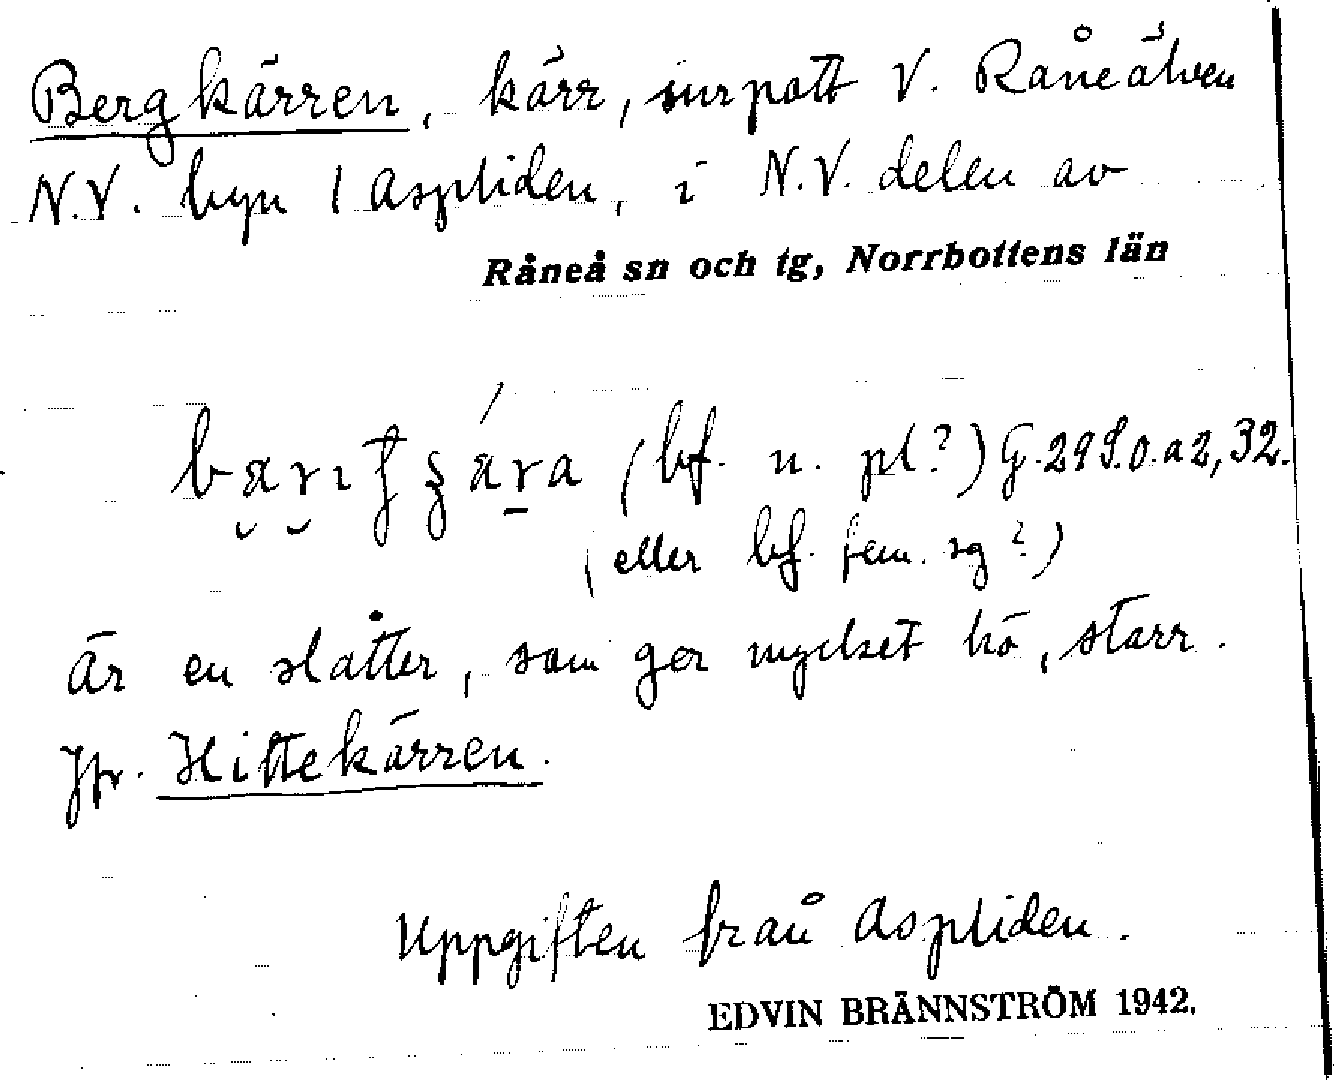 Bergkärren, kärr, surpott V. Råneälven
N.V. byn 1 Aspliden, i N.V. delen av
Råneå sn och tg, Norrbottens län
(bf. n. pl.?) G. 29 S.O. a 2, 32.
(eller bf. fem. sg?)
Är en slåtter, som ger mycket hö, starr.
Jfr. Hittekärren.
Uppgiften från Aspliden.
EDVIN BRÄNNSTRÖM 1942.